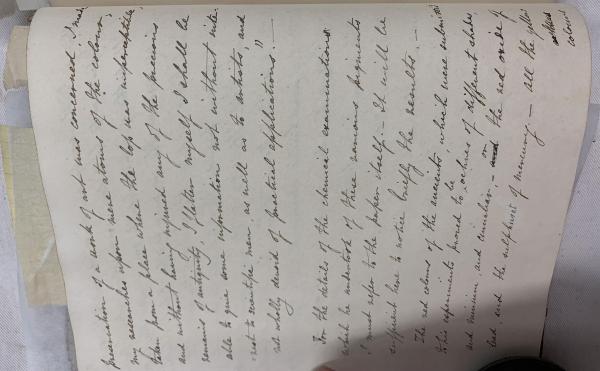 preservation of a work of art was concerned. I made
my researches upon mere atoms of the colours,
taken from a place where the loss was imperceptible,
and without having injured any of the precious
remains of antiquity, I flatter myself, I shall be
able to give some information not without inte-
rest to scientific men, as well as to artists, and
not wholly devoid of practical applications." —
For the details of the chemical examinations
which he undertook of these various pigments
I must refer to the paper itself — It will be
sufficient here to notice briefly the results. —
The red colours of the ancients, which were submitted
to his experiments proved to be ochres of different shades,
and minium, and cinnabar, — or the red oxide of
lead and the sulphuret of mercury; — all the yellow
colours